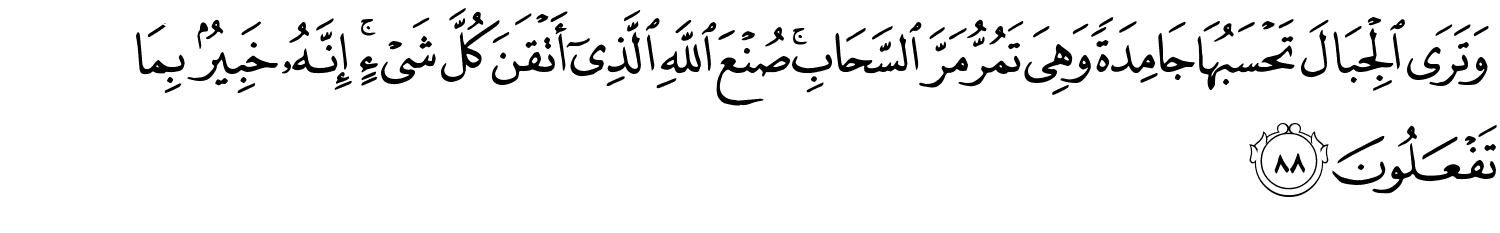 وَتَرَى ٱلْجِبَالَ تَحْسَبُهَا جَامِدَةً وَهِىَ تَمُرُّ مَرَّ ٱلسَّحَابِ ۚ صُنْعَ ٱللَّهِ ٱلَّذِىٓ أَتْقَنَ كُلَّ شَىْءٍ ۚ إِنَّهُۥ خَبِيرٌۢ بِمَا
تَفْعَلُونَ ٨٨